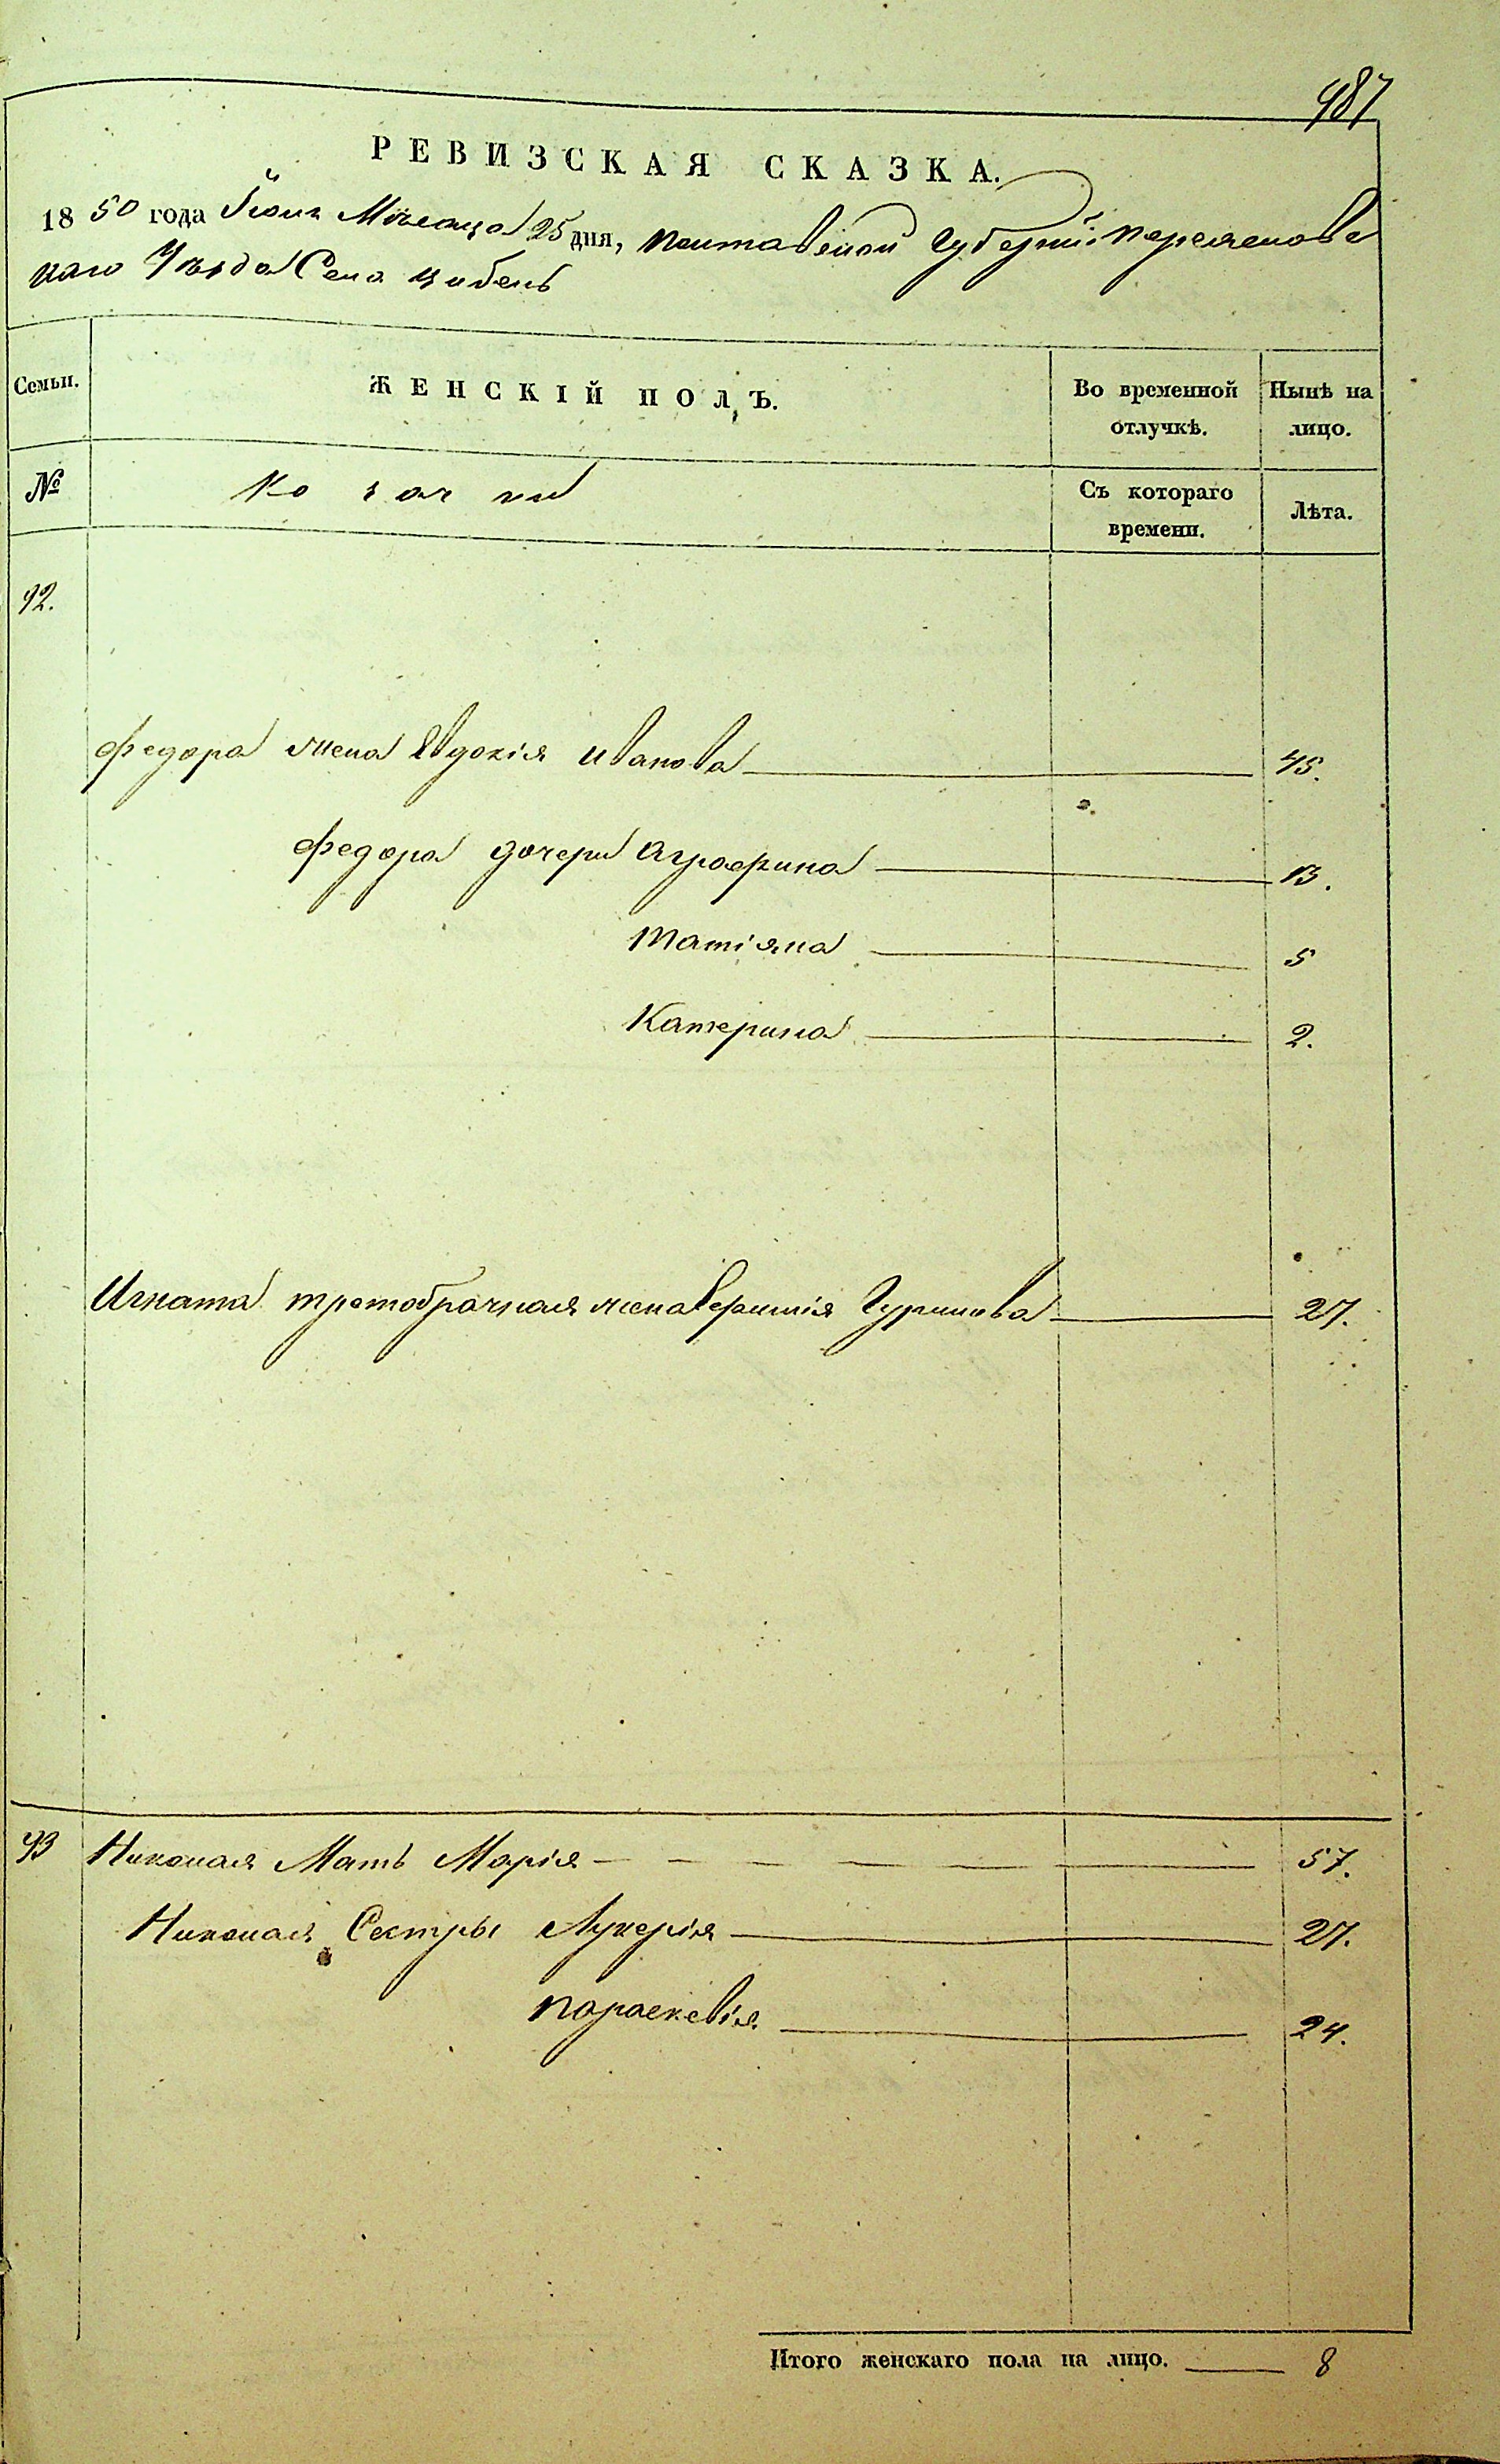 487
РЕВИЗСКАЯ СКАЗКА.
1850 года Юня Месяца 25 дня, Полтавской Губернии Переяславс
каго Уезда Села Цибель
Семьи. ЖЕНСКІЙ ПОЛЪ. Во временной отлучкѣ. Нынѣ на лицо.
№ Козачки Съ котораго времени. Лѣта.
92.
Федора жена Евдокія Иванова 45.
Федора дочери Аграфина 13.
Татіяна 5
Катерина 2.
Игната третобрачная жена Гуринова 27.
93 Николая Мать Марія 57.
Николая Сестры Лукерія 27.
Параскевія 24.
Итого женскаго пола на лицо. 8